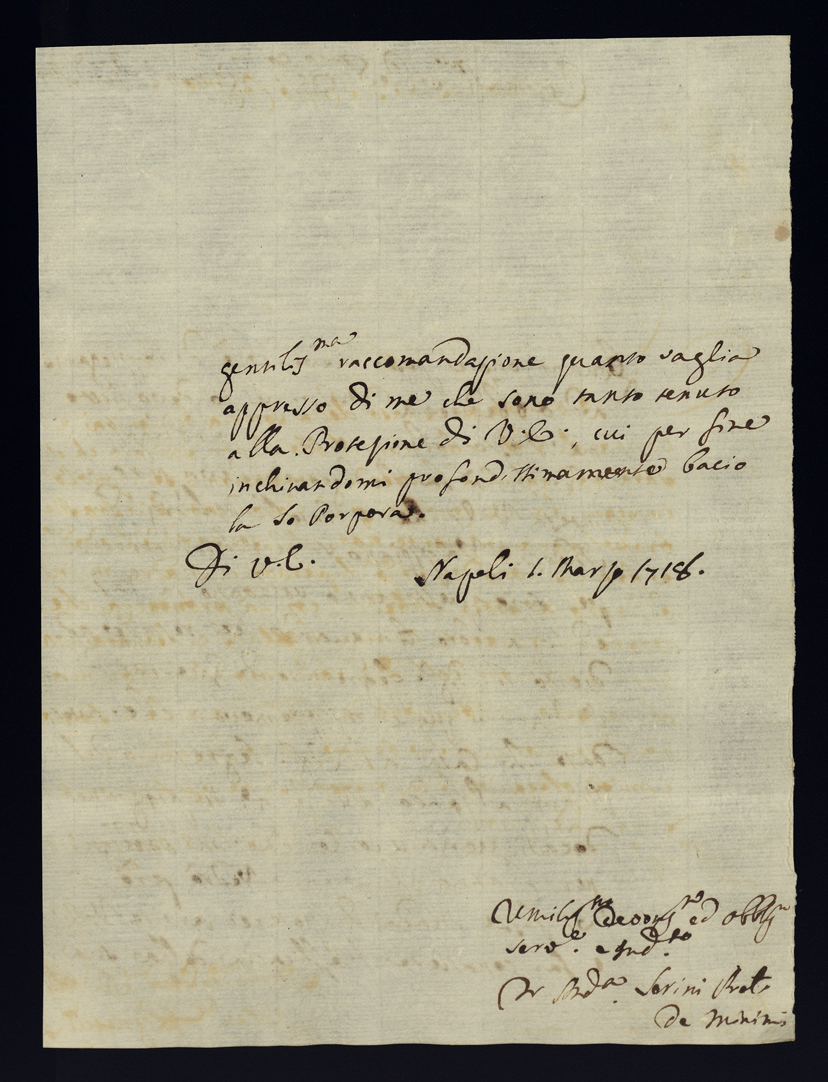 gentiliss.ma raccomandazione quanto vaglia
appresso di me che sono tanto tenuto
alla Protezione di V.E., cui per fine
inchinandomi profondissimamente bacio
la S. Porpora.
Di V.E. Napoli 1. Marzo 1718.
Umiliss.mo devotiss.mo ed obblig.mo
serv.e e
Fr And.a Serini Prot.
de Minimi